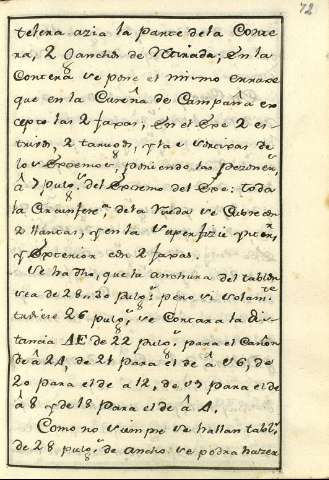 72
telera azia la parte dela Conte
ra, 2 Ganchos de Retirada; En la
Contera se pone el mismo enrase
que en la Cureña de Campaña ex
cepto las 2 faxas; En el Exe 2 es
trivos, 2 tacuos, y la
los Extremos; poniendo las pezoneras
â 7 pulg.s del Extremo del Exe: toda
la Circumfere.a de la Rueda se Cubre con
2 llantas, y en la superfizie
y Exterior con 2 faxas.
Se ha dho, que la anchura del tablon
sea de 28, 30 pulg.s pero si solam.te
tubiere 26 pulg.s se Contara la dis
tancia AE de 22 pulg.s para el Cañon
de â 24, de 21 para el de â 16, de
20 para el de a 12, de 19 para el de
â 8 y de 18 para el de â 4.
Como no siempre se hallan tabl.s
de 28 pulg.s de ancho se podra hazer